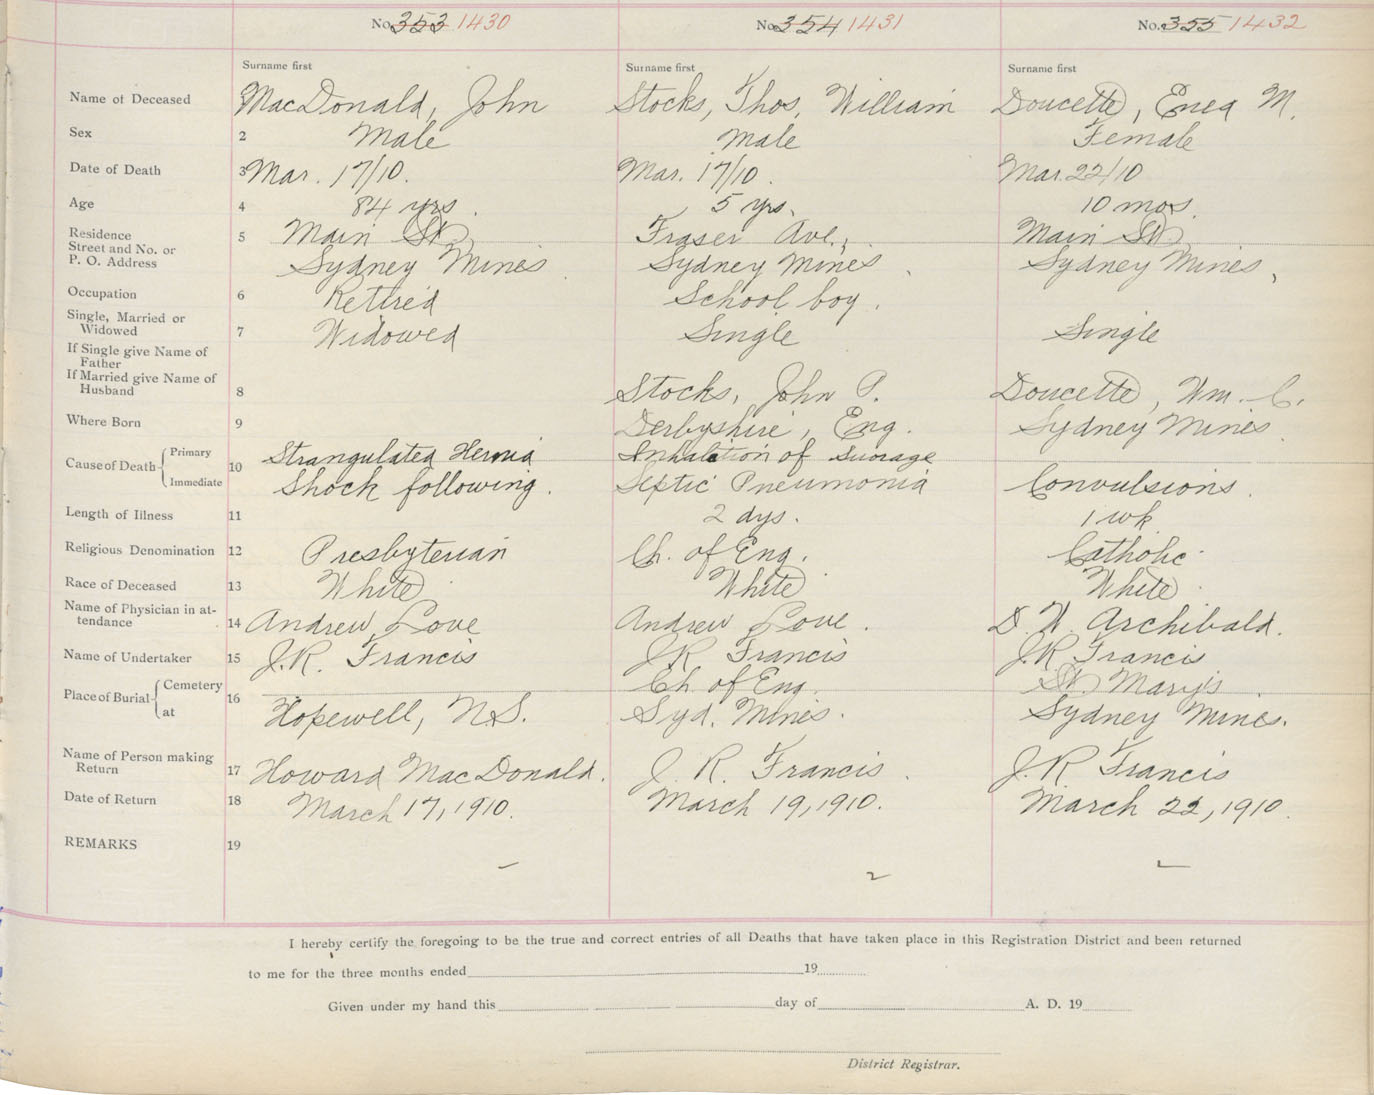 No. 353 1430 No. 354 1431 No. 355 1432
Surname first Surname first Surname first
Name of Deceased MacDonald, John Stocks, Thos. William Doucette, Enea M.
Sex 2 Male Male Female
Date of Death 3 Mar. 17/10. Mar. 17/10. Mar. 22/10
Age 4 84 yrs. 5 yrs. 10 mos.
Residence 5 Main St., Fraser Ave., Main St.
Street and No. or
P. O. Address Sydney Mines Sydney Mines, Sydney Mines,
Occupation 6 Retired School boy.
Single, Married or
Widowed 7 Widowed Single Single
If Single give Name of
Father
If Married give Name of
Husband 8 Stocks, John P. Doucette, Wm. C.
Where Born 9 Derbyshire, Eng. Sydney Mines
Cause of Death Primary 10 Strangulated Hernia Inhalation of Suorage
Immediate Shock following. Septic Pneumonia Convulsions.
Length of Illness 11 2 dys. 1 wk
Religious Denomination 12 Presbyterian Ch. of Eng. Catholic
Race of Deceased 13 White White White
Name of Physician in at-
tendance 14 Andrew Love Andrew Love. D. W. Archibald.
Name of Undertaker 15 J.R. Francis J.R. Francis J.R. Francis
Place of Burial Cemetery 16 Ch. of Eng. St. Mary's
at Hopewell, N.S. Syd. Mines. Sydney Mines.
Name of Person making
Return 17 Howard MacDonald. J. R. Francis. J. R. Francis
Date of Return 18 March 17, 1910. March 19, 1910. March 22, 1910.
REMARKS 19
I hereby certify the foregoing to be the true and correct entries of all Deaths that have taken place in this Registration District and been returned
to me for the three months ended 19
Given under my hand this day of A. D. 19
District Registrar.